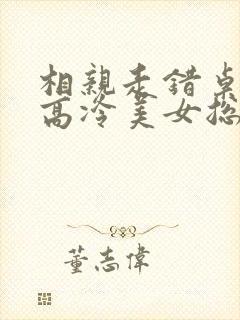 相親坐錯桌
高冷美女總
董志偉